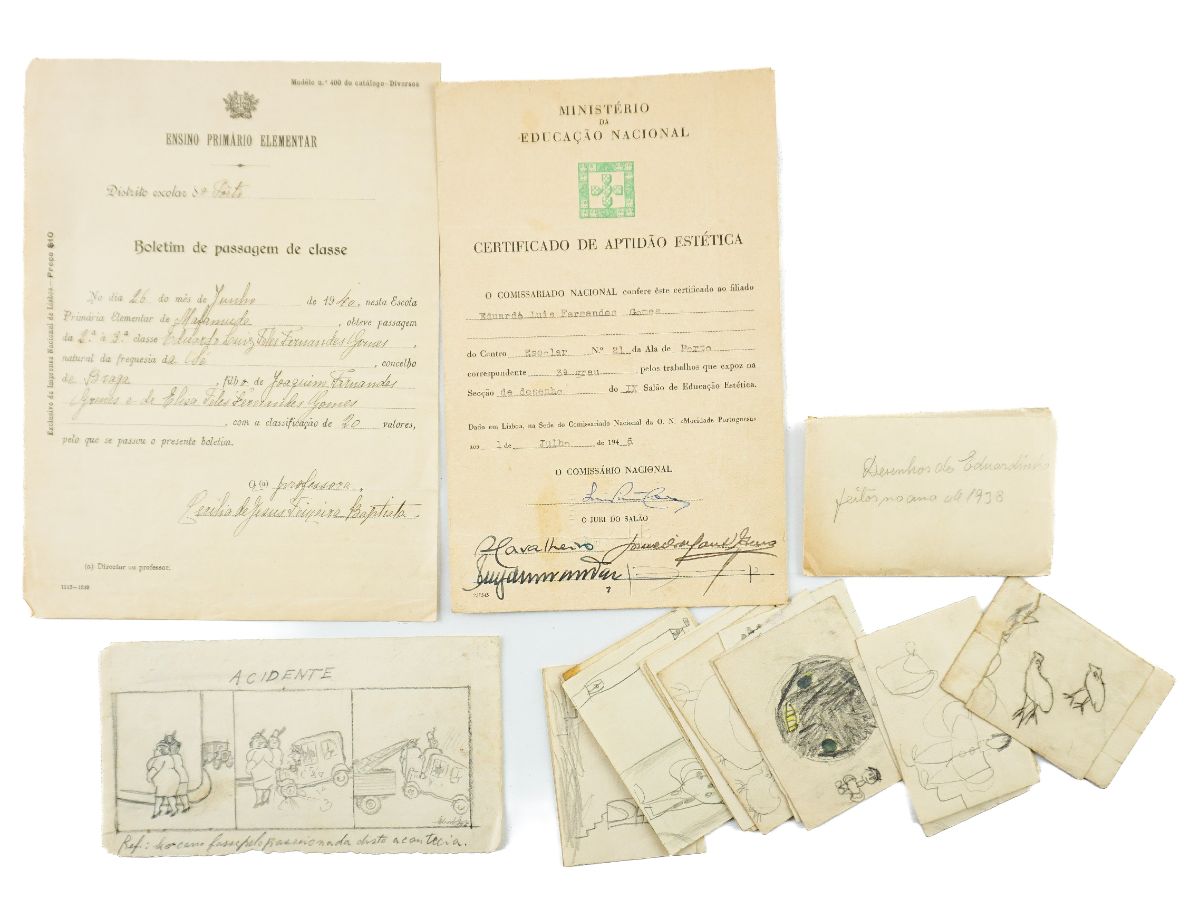 Modêlo n.º 400 do catálogo-Diversos
ENSINO PRIMÁRIO ELEMENTAR
Distrito escolar do Pôrto
Boletim de passagem de classe
No dia 26 do mês de Junho de 1940, nesta Escola
Primária Elementar de Mafamude, obteve passagem
da 2.ª à 3.ª classe Eduardo Luiz Teles Fernandes Gomes,
natural da freguesia da Sé, concelho
de Braga, filho de Joaquim Fernandes
Gomes e de Elisa Teles Fernandes Gomes
, com a classificação de 20 valores,
pelo que se passou o presente boletim.
O (a) professora,
Cecília de Jesus Teixeira Baptista
(a) Director ou professor.
Exclusivo da Imprensa Nacional de Lisboa—Preço $10
MINISTÉRIO
DA
EDUCAÇÃO NACIONAL
CERTIFICADO DE APTIDÃO ESTÉTICA
O COMISSARIADO NACIONAL confere êste certificado ao filiado
Eduardo Luis Fernandes Gomes
do Centro Escolar N.º 21 da Ala de Porto
correspondente 3º grau pelos trabalhos que expoz na
Secção de desenho do IX Salão de Educação Estética.
Dado em Lisboa, na Sede do Comissariado Nacional da O. N. «Mocidade Portuguesa»
aos 1 de Julho de 1946
O COMISSÁRIO NACIONAL
O JURI DO SALÃO
Desenhos do Eduardinho
feitos no ano de 1938
ACIDENTE
Ref.: se o cano fosse pelo passeio nada disto acontecia.